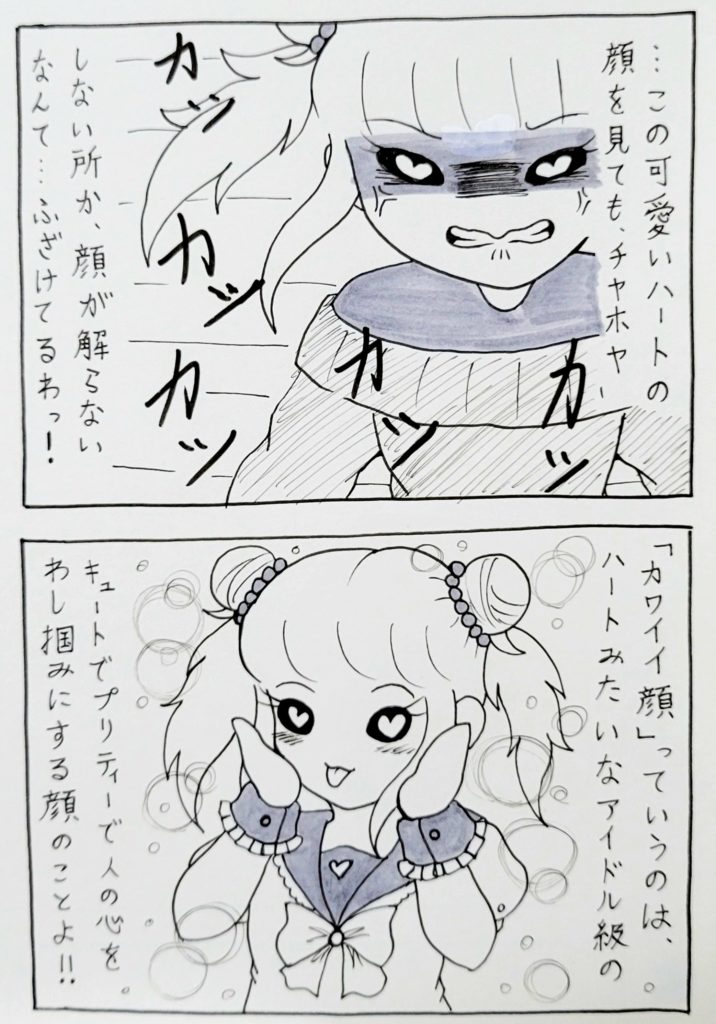 …この可愛いハートの
顔を見ても、チヤホヤ
しない所か、顔が解らない
なんて…ふざけてるわっ!
カッ
カッ
カッ
カッ
カッ
「カワイイ顔」っていうのは、
ハートみたいなアイドル級の
キュートでプリティーで人の心を
わし掴みにする顔のことよ!!